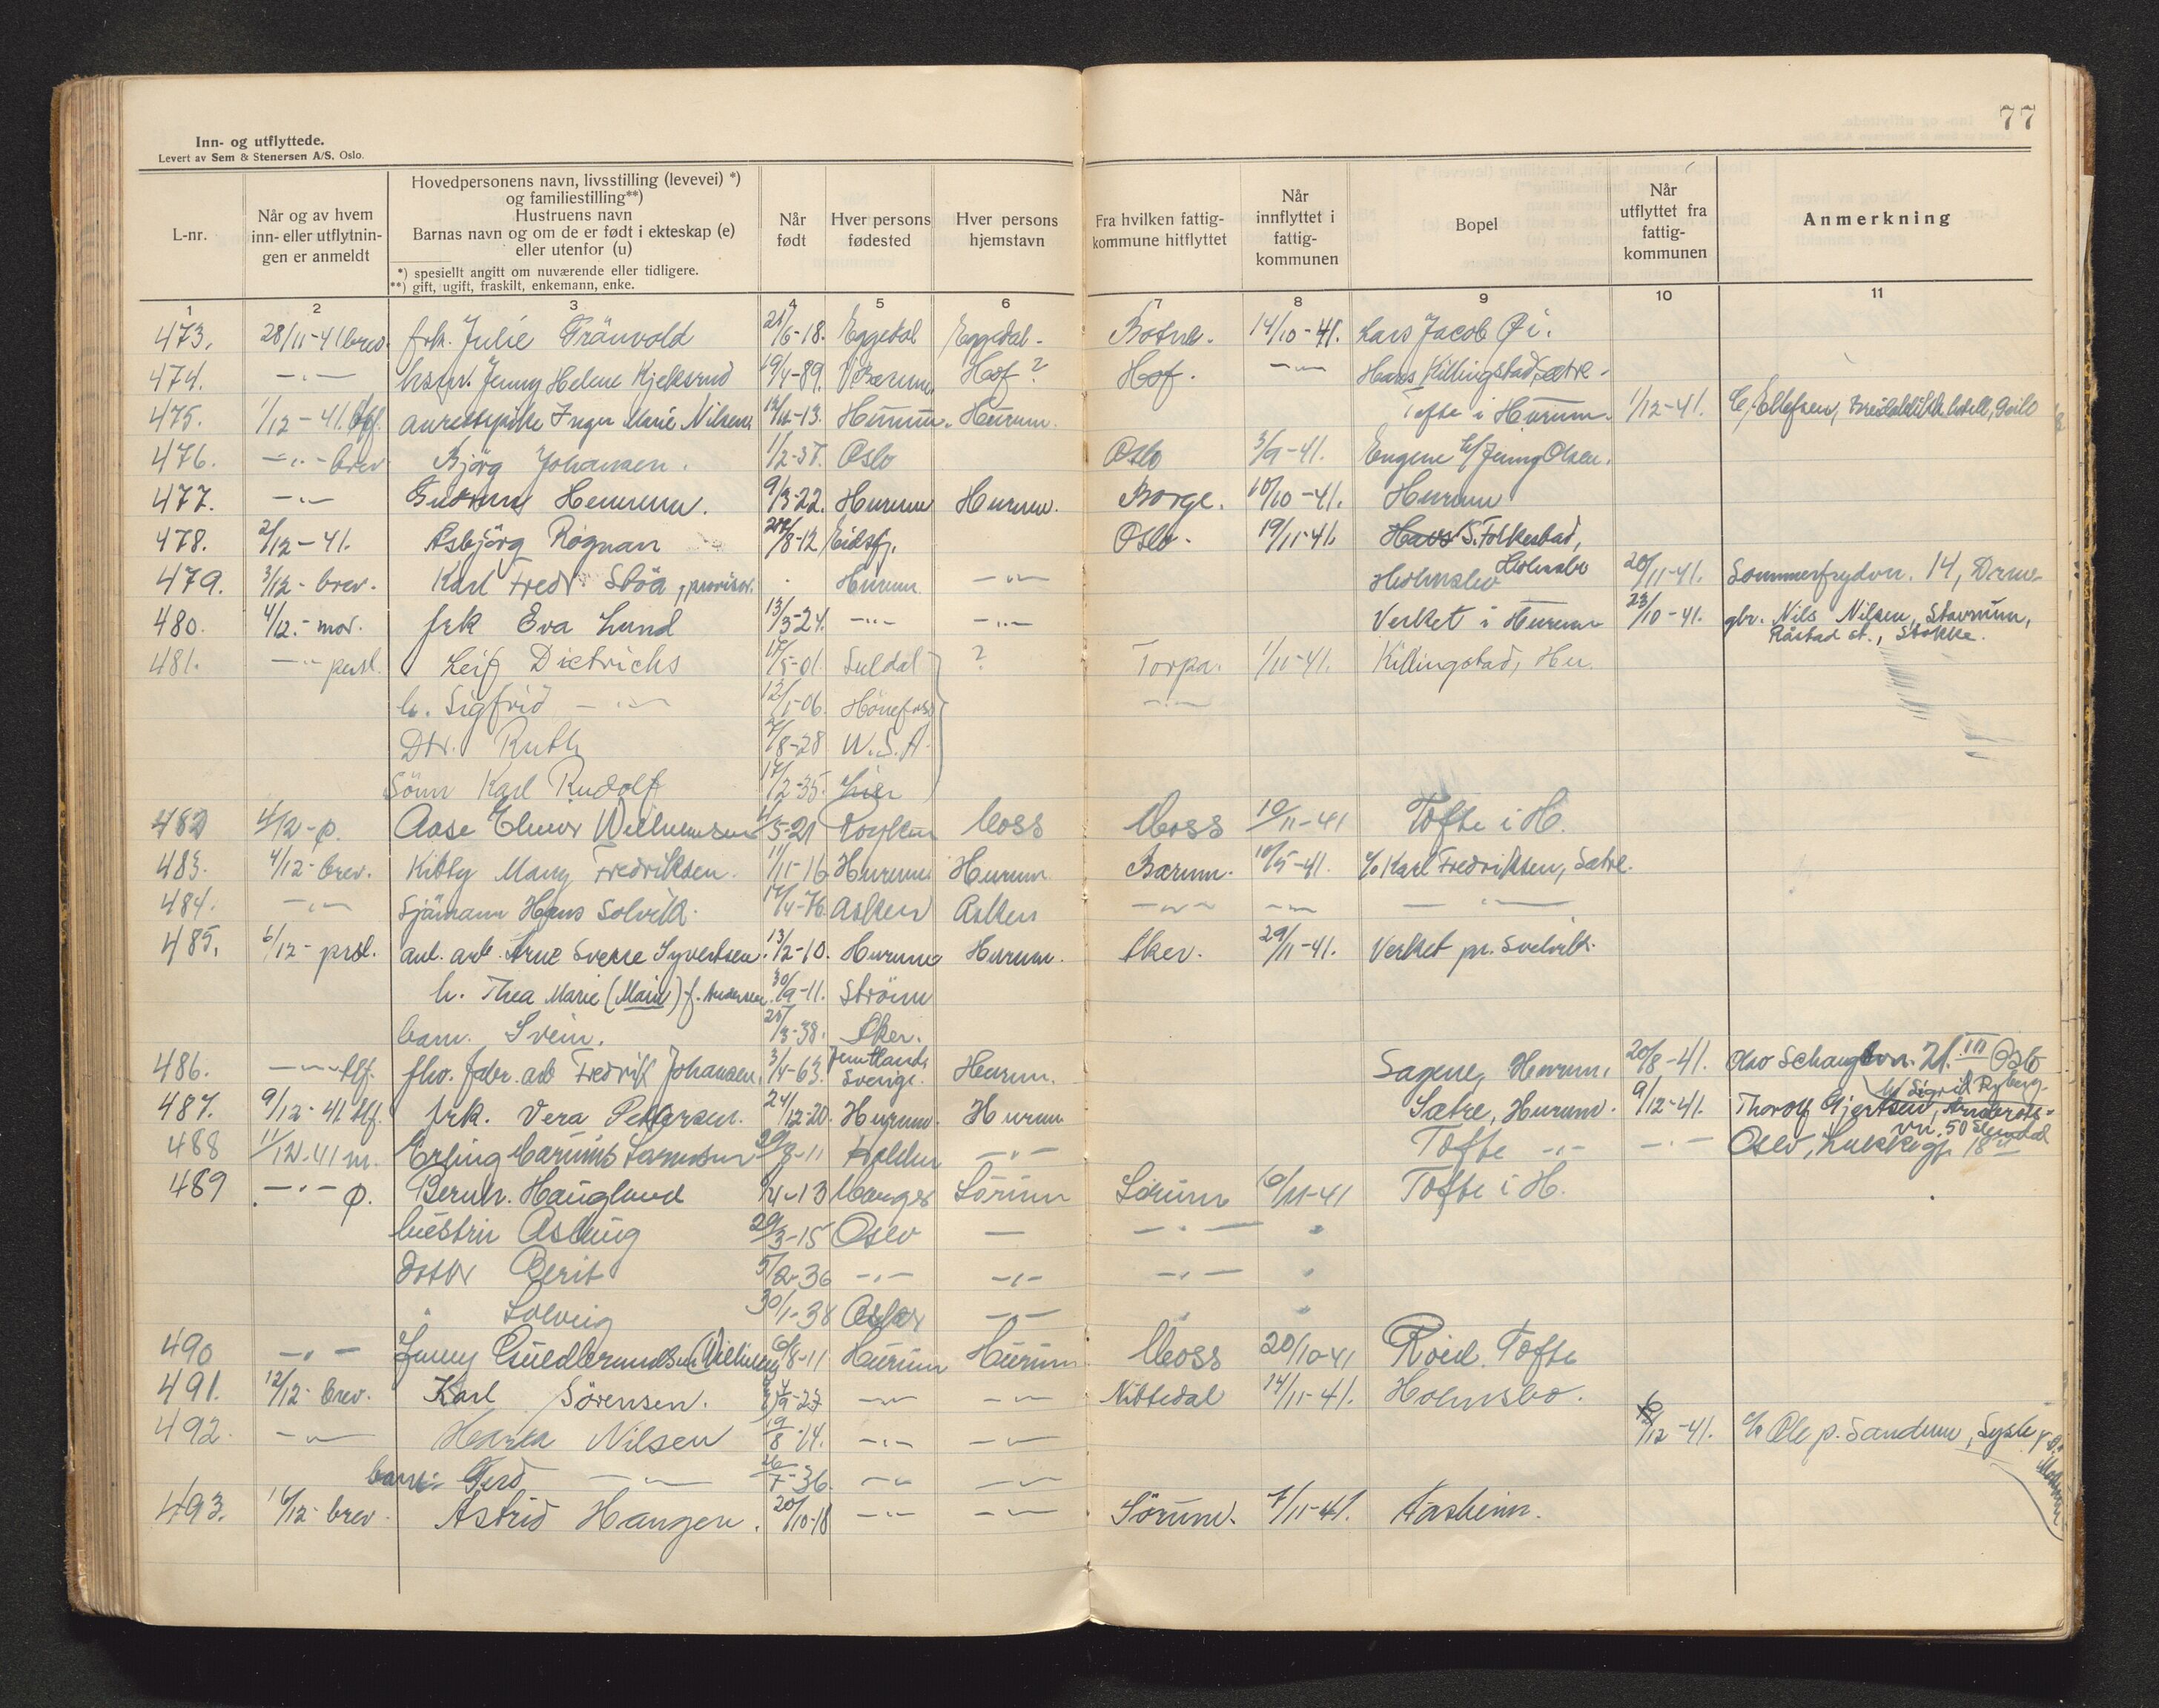 77
Inn- og utflyttede.
Levert av Sem & Stenersen A/S, Oslo.
L-nr.
Når og av hvem inn- eller utflytnin- gen er anmeldt
Hovedpersonens navn, livsstilling (levevei) *) og familiestilling**) Hustruens navn Barnas navn og om de er født i ekteskap (e) eller utenfor (u)
*) spesiellt angitt om nuværende eller tidligere.
**) gift, ugift, fraskilt, enkemann, enke.
Når født
Hver persons fødested
Hver persons hjemstavn
Fra hvilken fattig- kommune hitflyttet
Når innflyttet i fattig- kommunen
Bopel
Når utflyttet fra fattig- kommunen
Anmerkning
1 2 3 4 5 6 7 8 9 10 11
473. 28/11-41 brev. frk. Julie Tränvold 21/6-18. Eggedal Eggedal - Botne. 14/10-41. Lars Jacob Øi.
474. -"- Jenny Helene Kjeksrud 19/4-89. Hof? Hof. -"- Hans Killingstad, Sætre.
475. 1/12-41. tlf. Inger Marie Nilsen. -13. Hurum. Hurum. Tofte i Hurum. 1/12-41. Ellefsen, hotell, Geilo
476. -"- brev Bjørg Johansen. 1/2-37. Oslo Oslo 3/9-41. Eugene Jenny Olsen.
477. -"- 9/3-22. Hurum Hurum. Borge. 10/10-41. Hurum
478. 2/12-41. Asbjörg Rognan 8-12 Eidsf. Oslo. 19/11-41. Hans S. Folkestad, Holmsbo
479. 3/12- brev. Karl Fredr. Stöa, provisor. Hurum -"- Holmsbo 20/11-41. Sommerfrydvn. 14, Drmn.
480. 4/12.- mor. frk Eva Lund 13/3-24. -"- -"- Verket i Hurum 23/10-41. gbr. Nils Nilsen, Stavrum,
Råstad st., Stokke.
481. -"- persl. Leif Dietrichs 5-01. Suldal ? Torpa. 1/11-41. Killingstad, Hu.
h. Sigfrid -"- 12/1-06. Hönefoss -"-
Dtr. Ruth 8-28 U.S.A.
Sönn Karl Rudolf 17/2-35. Lier
482 4/12-p. Aase Wilhelmsen 5-21 Røyken Moss Moss 10/11-41 Tofte i H.
483. 4/12- brev. Kitty Mary Fredriksen. 11/11-16 Hurum Hurum Bærum. 10/5-41. c/o Karl Fredriksen, Sætre.
484. -"- Sjämann Hans Solvik. 4-76. Asker Asker -"- -"- -"-
485. 6/12- prsl. anl. arb. Arne Sverre Syvertsen. 13/2-10. Hurum Hurum. Aker. 29/11-41. Verket pr. Svelvik.
h. Thea Marie (Maia) f. Andersen 30/9-11. Ström
barn. Svein. 3-38. Aker.
486. -"- tlf. fhv. fabr. arb Fredrik Johansen. 3/4-63. Jemtland, Sverige. Hurum. Sagene, Hurum. 20/8-41. Olav Schougsvn. 21. III Oslo
487. 9/12-41 tlf. frk. Vera Pettersen. 24/12-20. Hurum. Hurum Sætre, Hurum. 9/12-41. Thorolf Gjertsen,
c/o Sigrid Ryberg
488 11/12-41 m. Erling -11 -"- Tofte -"- -"- Oslo, 18
489 -"- p. Bernh. Haugland 4-13 Manger Sörum Sörum 6/11-41 Tofte i H.
hustru Aslaug 29/3-15 Oslo — -"- "
dotter Berit 5/2-36 -"- -"- -"- "
" Solveig 30/1-38 Asker -"- " "
490 -"- Jenny 6/8-11 Hurum Hurum Moss 20/10-41 Tofte
491. 12/12- brev. Karl Sörensen. -"- -"- Nittedal 14/11-41. Holmsbo.
492. -"- Nilsen 19/8-14. -"- -"- 12-41. c/o Ole p. Sandum, Sysle
barn: Gerd -"- 26/7-36. -"- -"-
493. 16/12- brev. Astrid Haugen. 20/10-18 -"- -"- Sörum. 7/11-41. Aasheim.